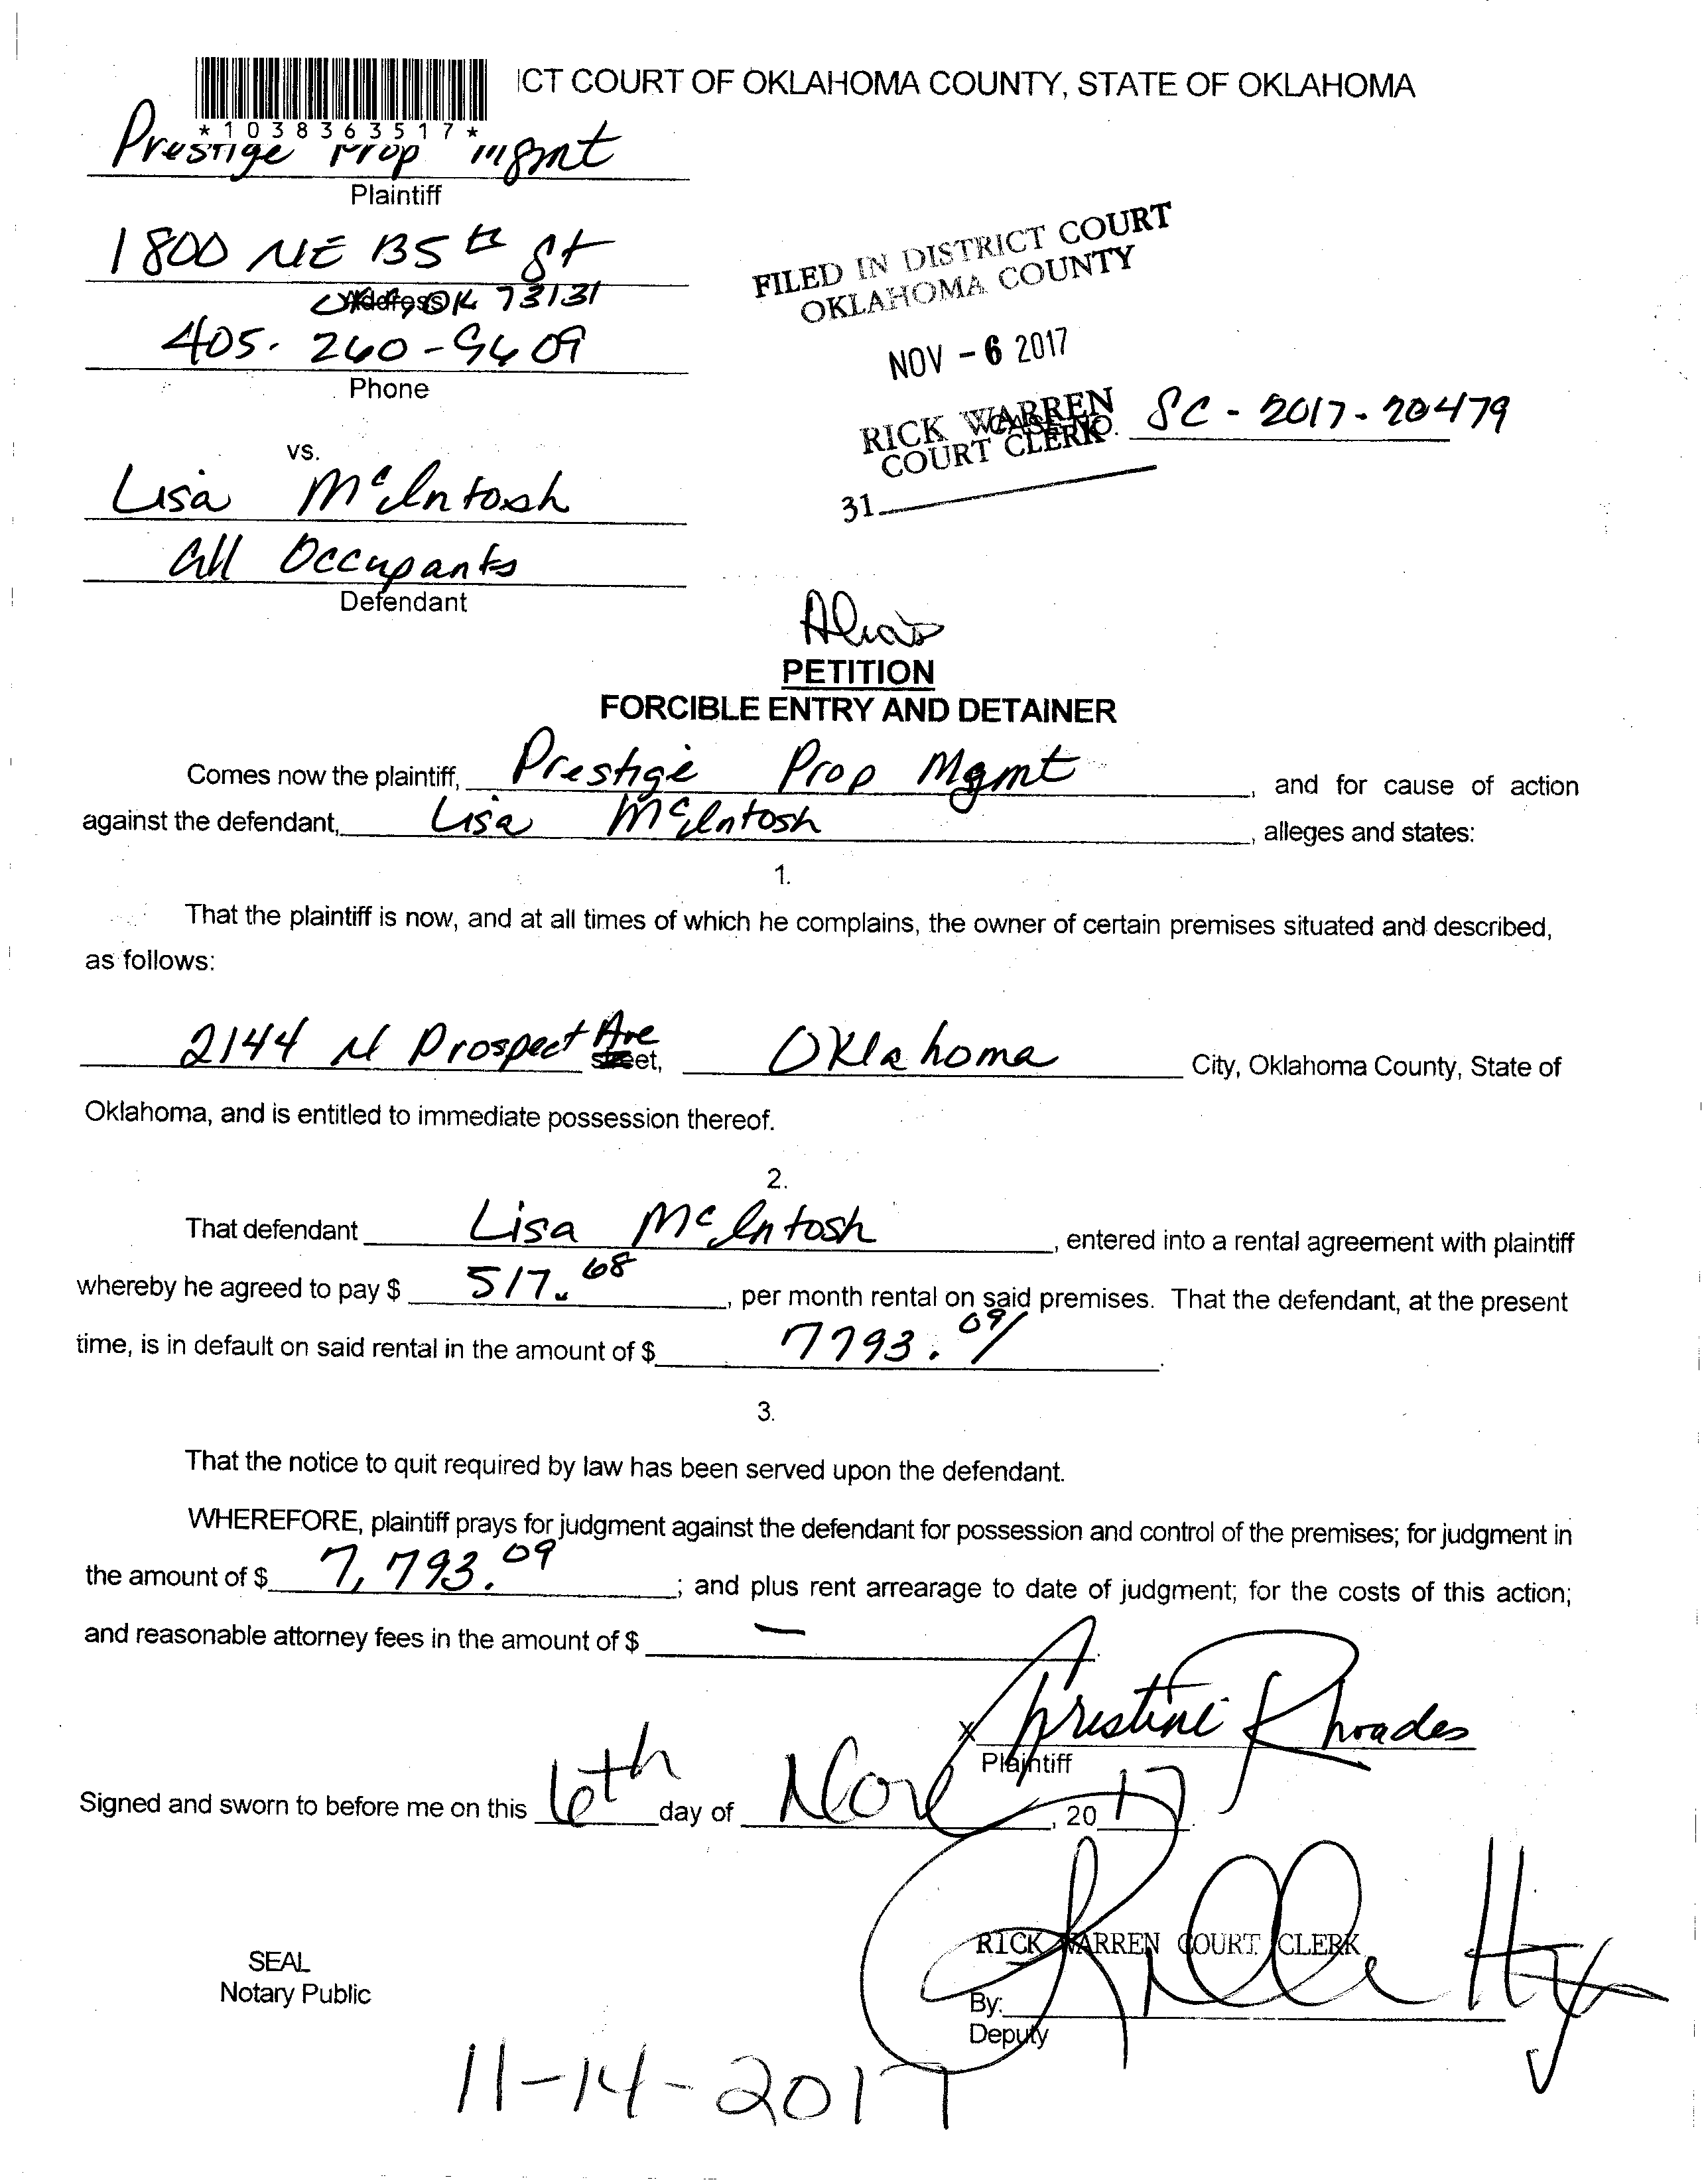 ICT COURT OF OKLAHOMA COUNTY, STATE OF OKLAHOMA
*1038363517*
Prestige Prop Mgmt
Plaintiff
1800 NE 135th St
Address OK 73131
405. 260-9609
Phone
FILED IN DISTRICT COURT
OKLAHOMA COUNTY
NOV - 6 2017
RICK WARREN
COURT CLERK
CASE NO. SC - 2017 - 20479
31
vs.
Lisa McIntosh
All Occupants
Defendant
Alias
PETITION
FORCIBLE ENTRY AND DETAINER
Comes now the plaintiff, Prestige Prop Mgmt, and for cause of action
against the defendant, Lisa McIntosh, alleges and states:
1.
That the plaintiff is now, and at all times of which he complains, the owner of certain premises situated and described,
as follows:
2144 N Prospect Ave street, Oklahoma City, Oklahoma County, State of
Oklahoma, and is entitled to immediate possession thereof.
2.
That defendant Lisa McIntosh, entered into a rental agreement with plaintiff
whereby he agreed to pay $ 517.68, per month rental on said premises. That the defendant, at the present
time, is in default on said rental in the amount of $ 7793.09.
3.
That the notice to quit required by law has been served upon the defendant.
WHEREFORE, plaintiff prays for judgment against the defendant for possession and control of the premises; for judgment in
the amount of $ 7,793.09; and plus rent arrearage to date of judgment; for the costs of this action;
and reasonable attorney fees in the amount of $ —
X Christine Rhoades
Plaintiff
Signed and sworn to before me on this 6th day of Nov, 2017.
RICK WARREN COURT CLERK
SEAL
Notary Public
By:
Deputy
11-14-2017